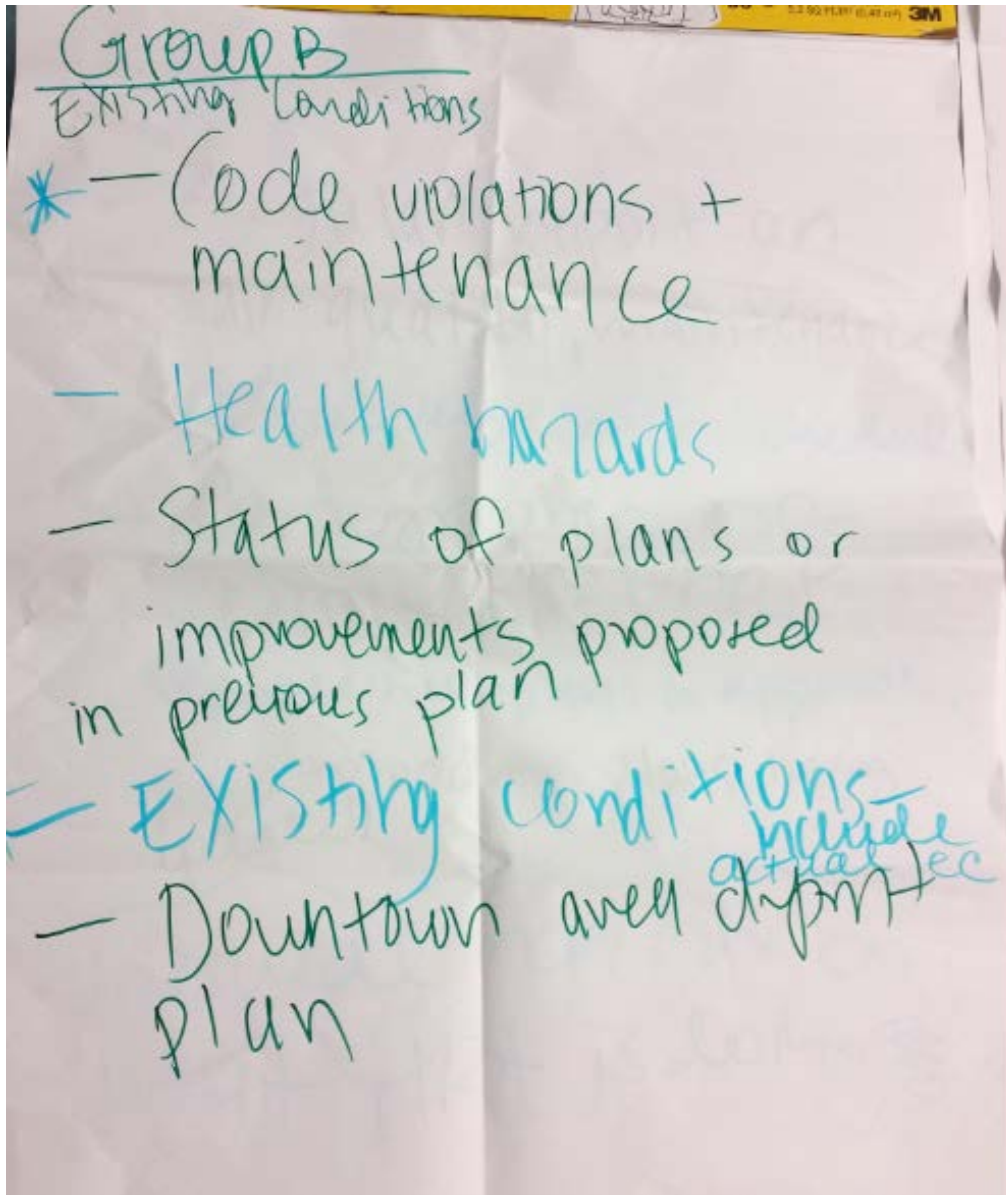 3M
Group B
Existing Conditions
* - Code violations +
maintenance
- Health hazards
- Status of plans or
improvements proposed
in previous plan
- Existing conditions -
include
actual ec
- Downtown area
plan